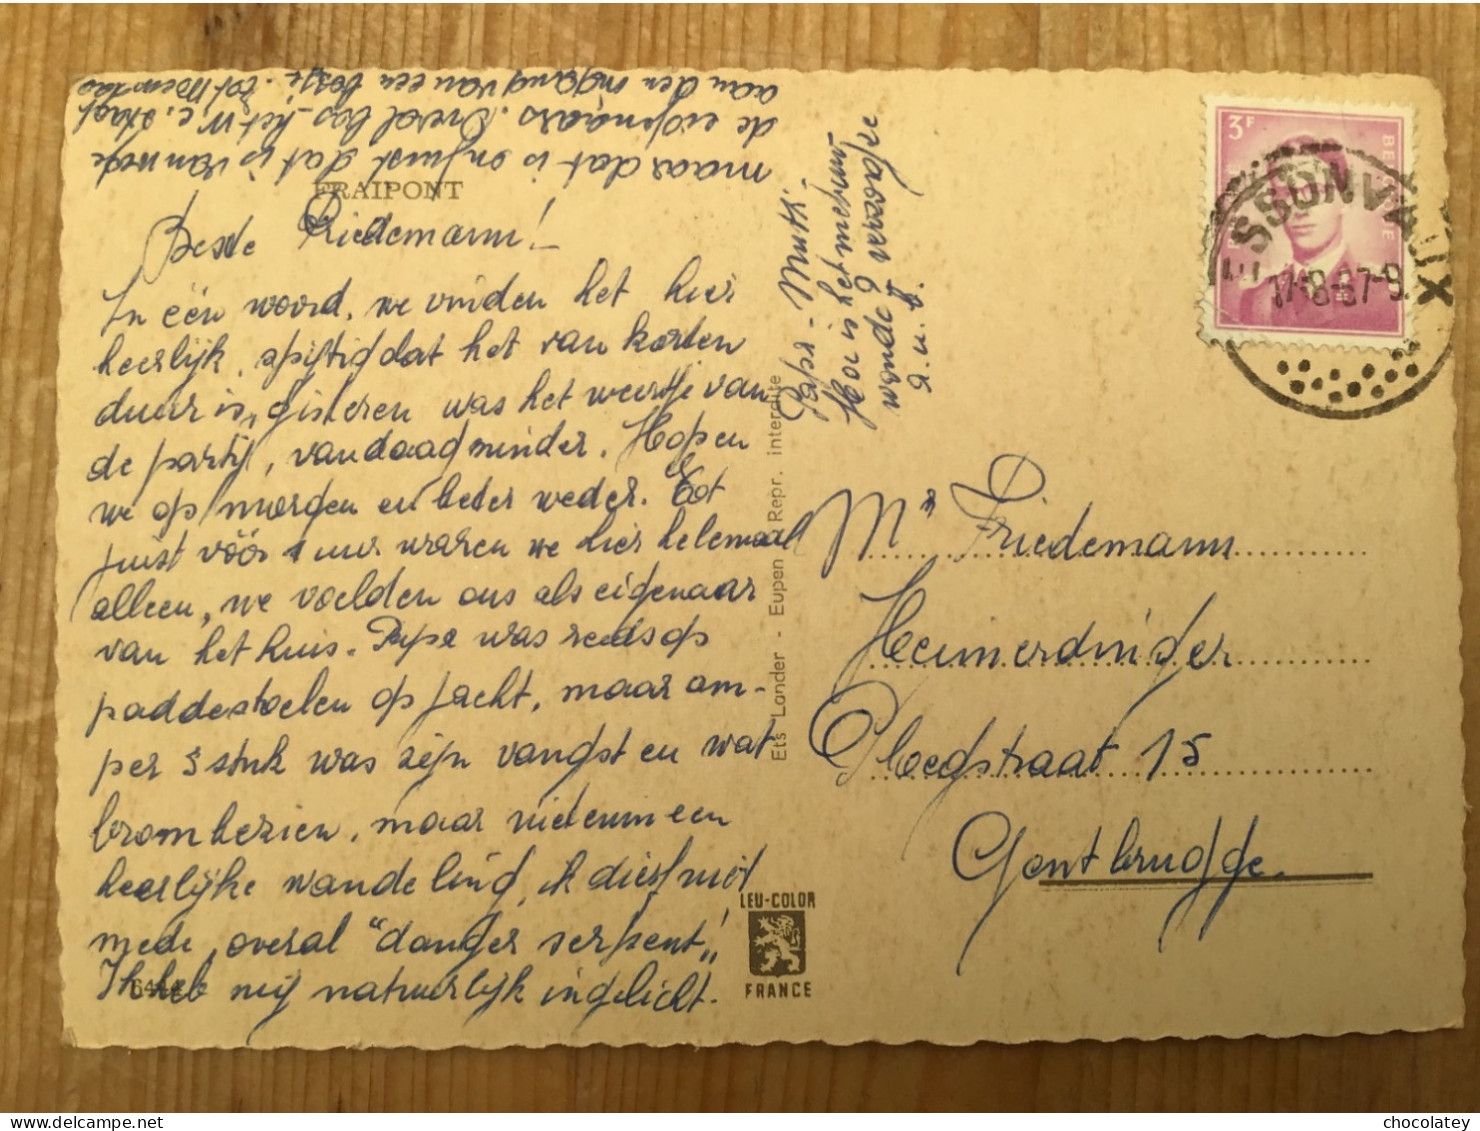 FRAIPONT
Beste Friedemann!
In één woord, we vinden het hier
heerlijk, spijtig dat het van korten
duur is, gisteren was het weertje van
de partij, vandaag minder. Hopen
we op morgen en beter weder. Tot
juist vóór 1 uur waren we hier helemaal
alleen, we voelden ons als eigenaar
van het huis. Papa was reeds op
paddestoelen op jacht, maar am-
per 3 stuk was zijn vangst en wat
brombeziën, maar niet een
heerlijke wandeling, ik dierf niet
mede, overal "danger serpent"!
Ik heb mij natuurlijk ingelicht.
maar dat is onjuist dat is vanwege
de eigenaars. Overal bos - het W.C. staat
aan den ingang van een bosje. Tot
Papa - Mutti.
Hoe is het met uw
wonde
a.u.b.
Ets Lander - Eupen Repr. interdite
6444
LEU-COLOR
FRANCE
3F
BELGIE
SSONVAUX
17-8-67-9
Mr Friedemann
Heimerdinger
Ploegstraat 15
Gentbrugge.
chocolatey